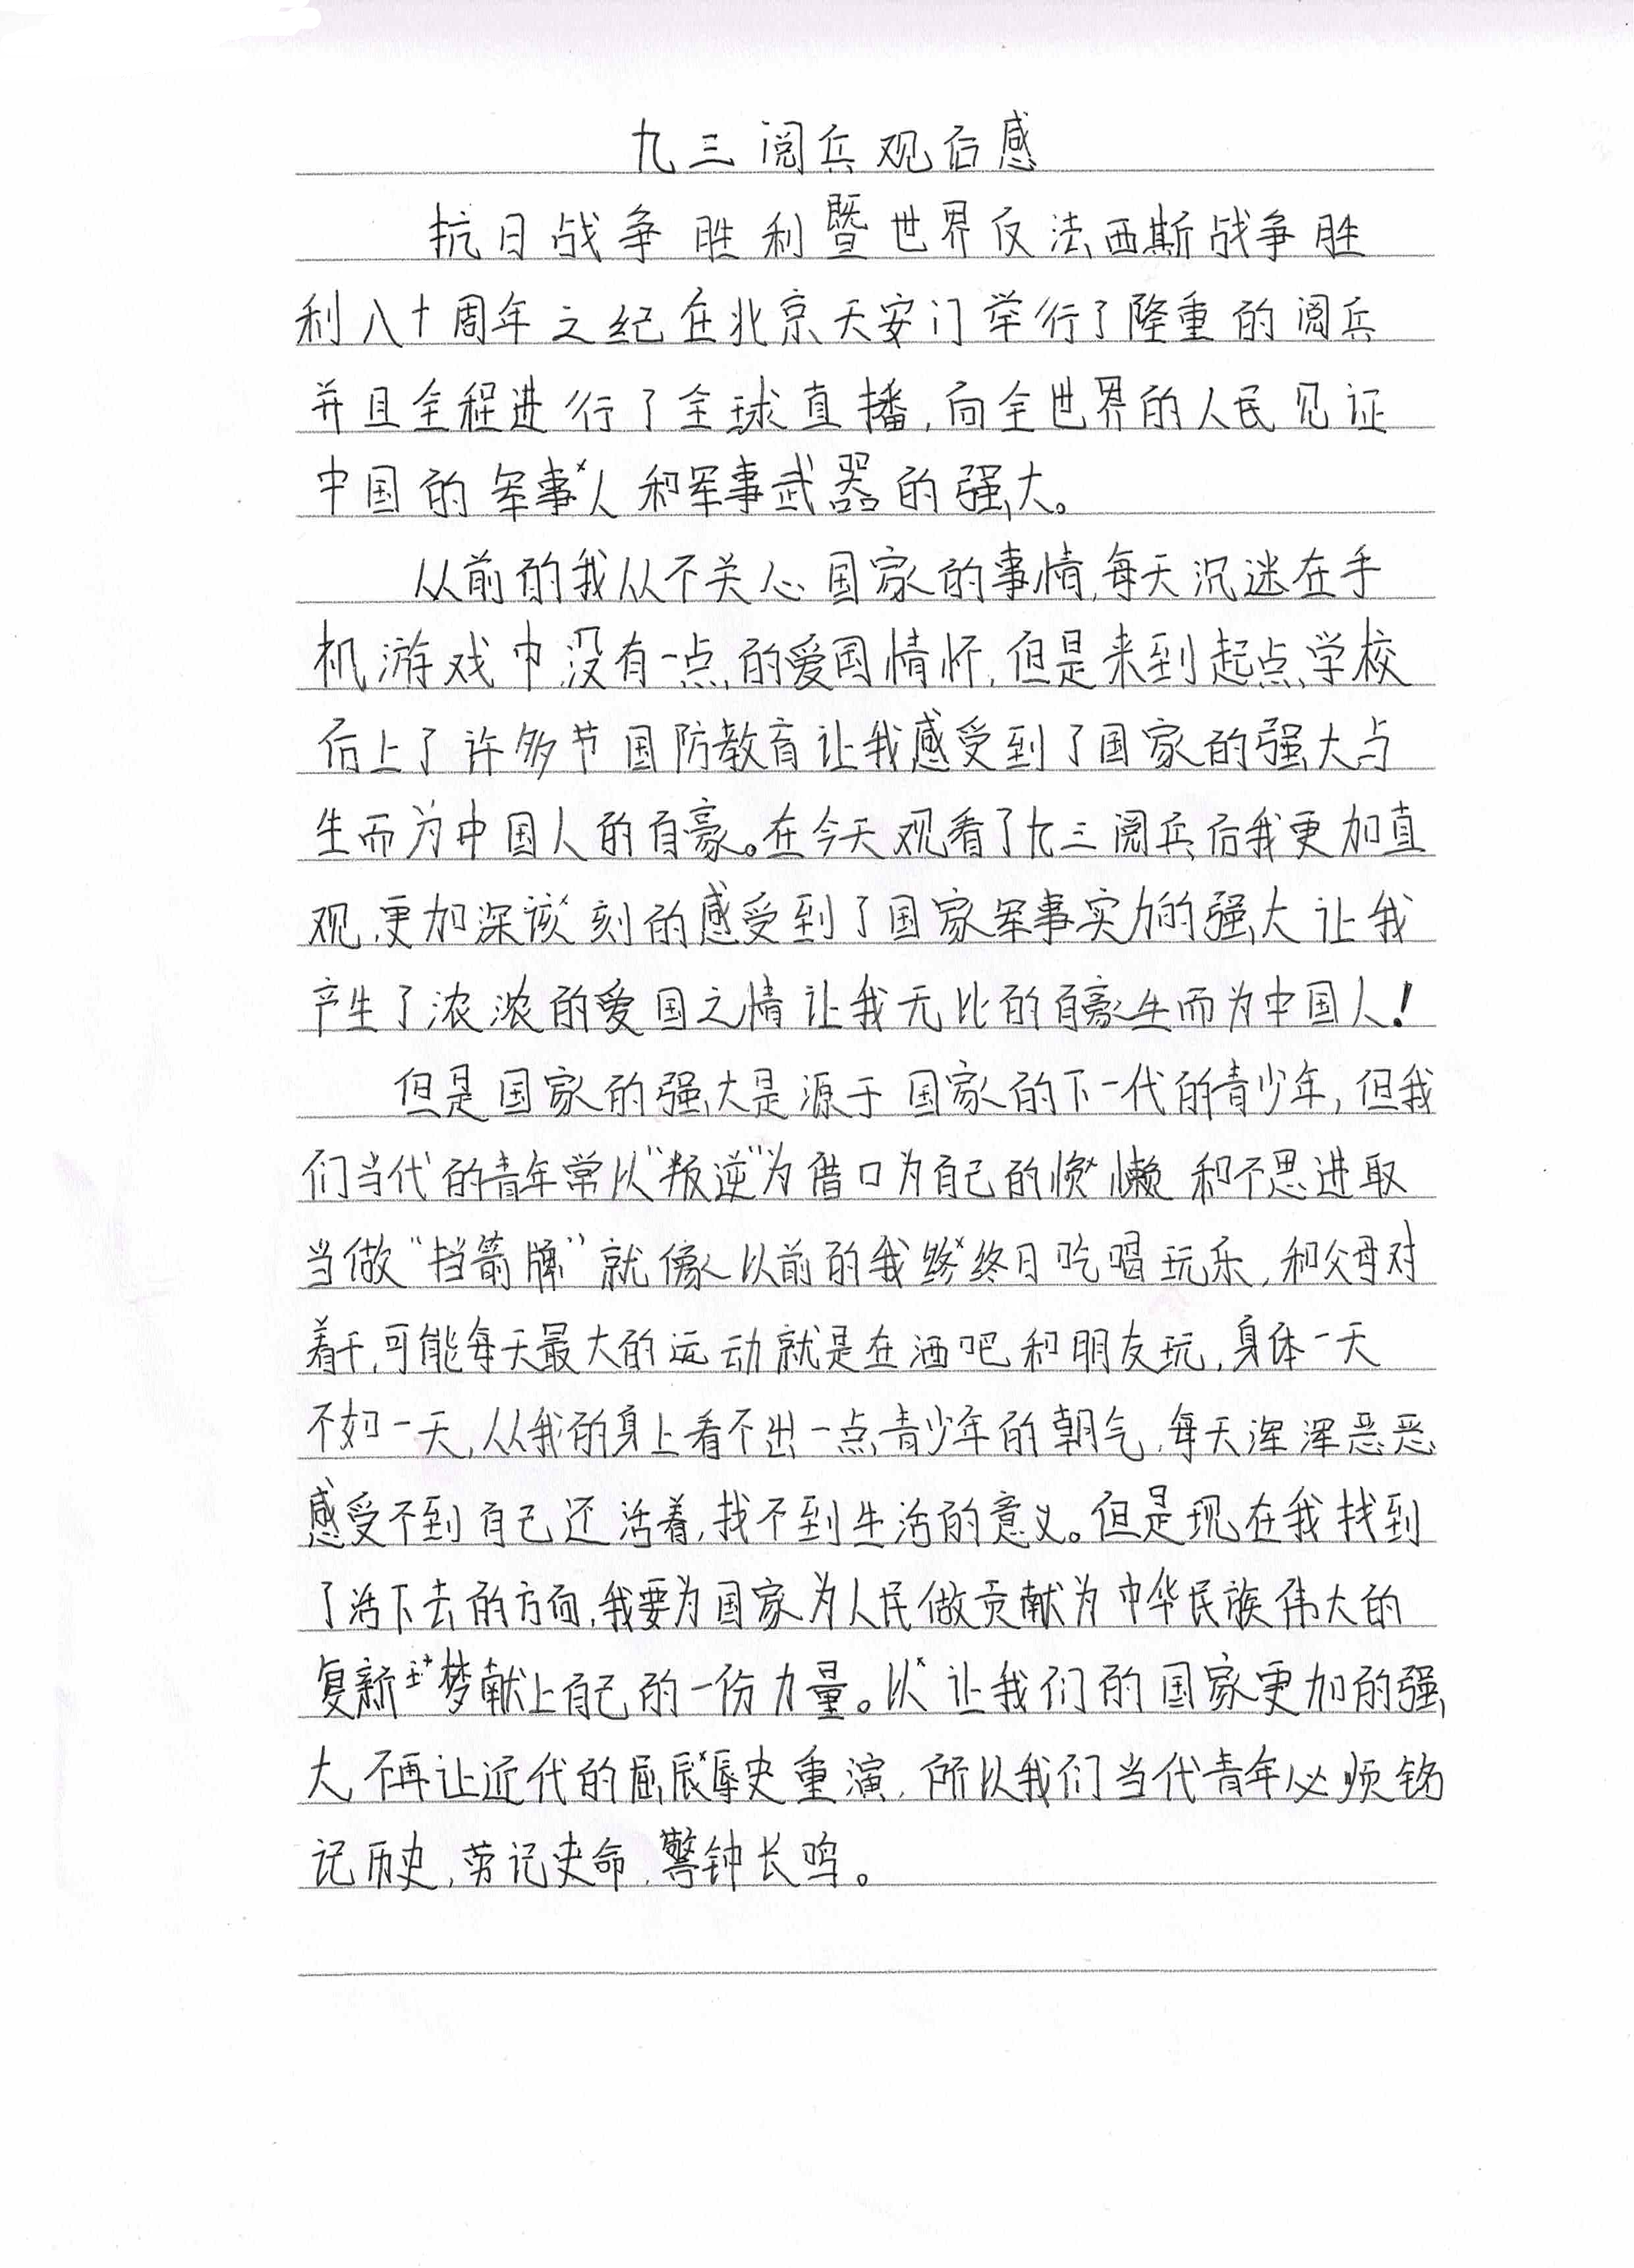 九三阅兵观后感
抗日战争胜利暨世界反法西斯战争胜
利八十周年之纪在北京天安门举行了隆重的阅兵
并且全程进行了全球直播,向全世界的人民见证
中国的军事人和军事武器的强大。
从前的我从不关心国家的事情,每天沉迷在手
机游戏中没有一点的爱国情怀,但是来到起点学校
后上了许多节国防教育让我感受到了国家的强大与
生而为中国人的自豪。在今天观看了九三阅兵后我更加直
观,更加深该刻的感受到了国家军事实力的强大让我
产生了浓浓的爱国之情让我无比的自豪生而为中国人!
但是国家的强大是源于国家的下一代的青少年,但我
们当代的青年常以“叛逆”为借口为自己的懒和不思进取
当做“挡箭牌”就像以前的我终终日吃喝玩乐,和父母对
着干,可能每天最大的运动就是在酒吧和朋友玩,身体一天
不如一天,从我的身上看不出一点青少年的朝气,每天浑浑恶恶
感受不到自己还活着,找不到生活的意义。但是现在我找到
了活下去的方向,我要为国家为人民做贡献为中华民族伟大的
复新梦献上自己的一份力量。以让我们的国家更加的强
大,不再让近代的屈辰辱史重演,所以我们当代青年必须铭
记历史,劳记史命,警钟长鸣。